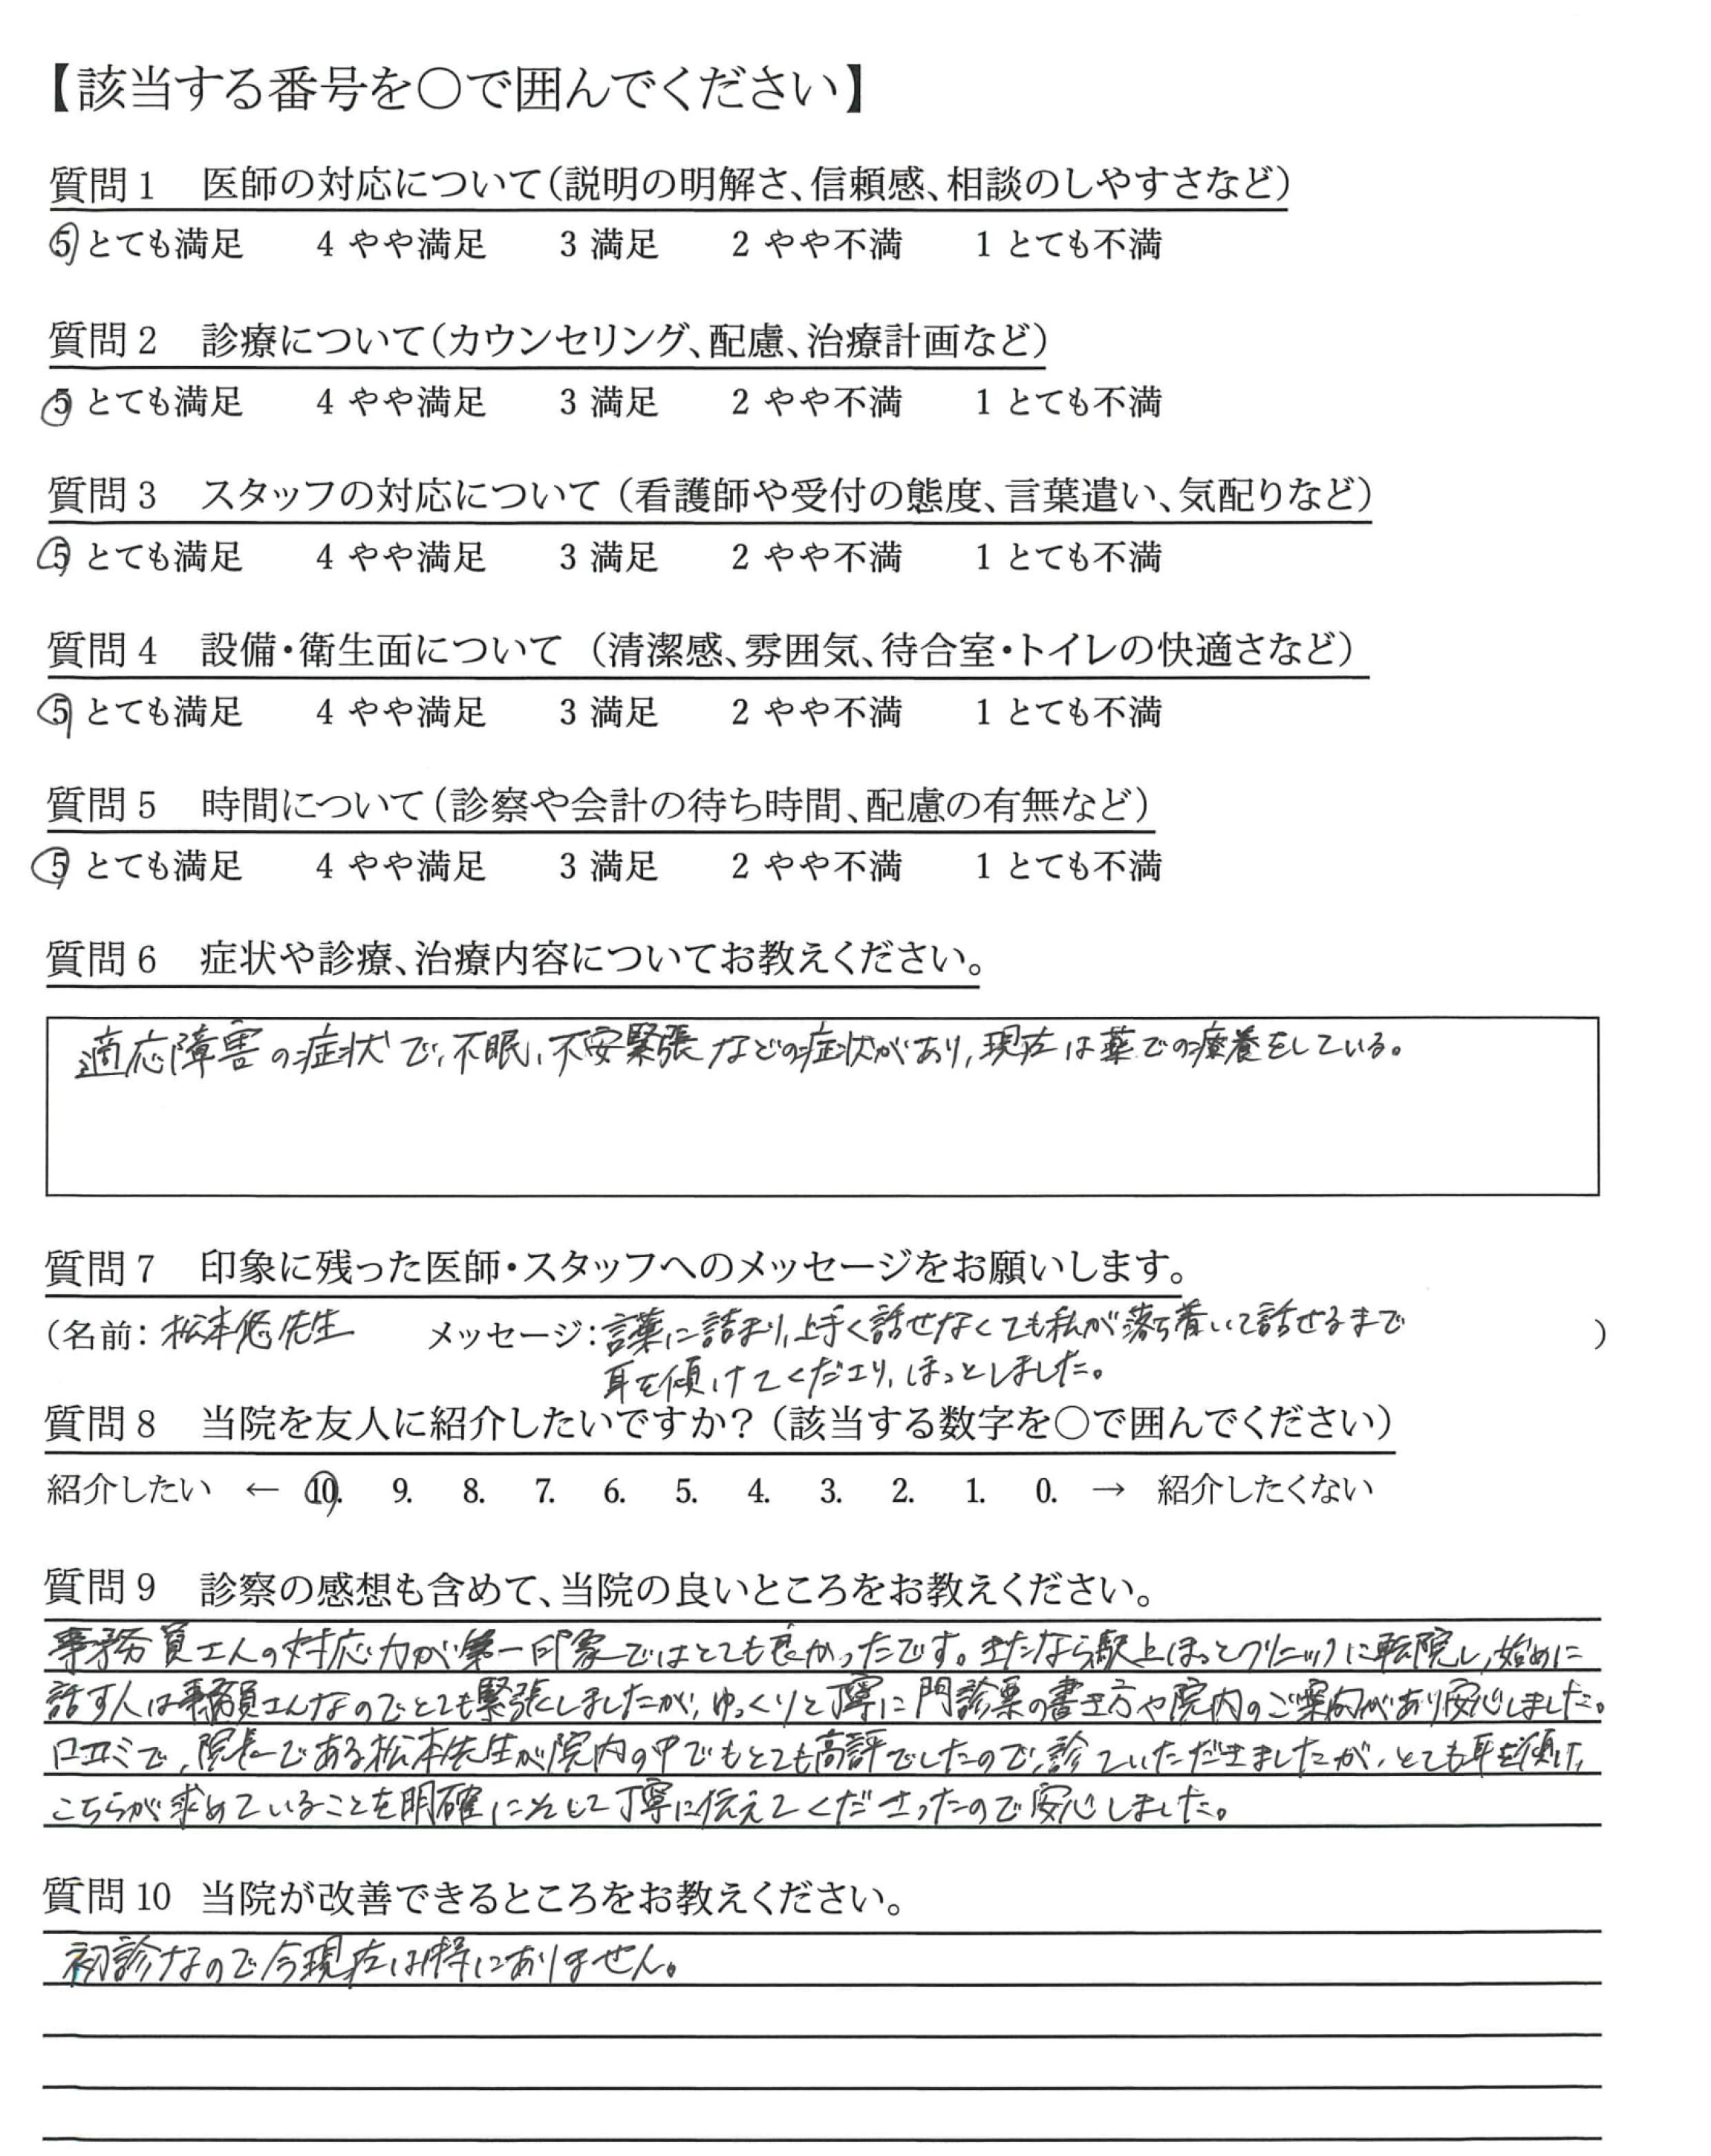 【該当する番号を〇で囲んでください】
質問1 医師の対応について(説明の明解さ、信頼感、相談のしやすさなど)
5 とても満足 4 やや満足 3 満足 2 やや不満 1 とても不満
質問2 診療について(カウンセリング、配慮、治療計画など)
5 とても満足 4 やや満足 3 満足 2 やや不満 1 とても不満
質問3 スタッフの対応について(看護師や受付の態度、言葉遣い、気配りなど)
5 とても満足 4 やや満足 3 満足 2 やや不満 1 とても不満
質問4 設備・衛生面について(清潔感、雰囲気、待合室・トイレの快適さなど)
5 とても満足 4 やや満足 3 満足 2 やや不満 1 とても不満
質問5 時間について(診察や会計の待ち時間、配慮の有無など)
5 とても満足 4 やや満足 3 満足 2 やや不満 1 とても不満
質問6 症状や診療、治療内容についてお教えください。
適応障害の症状で、不眠、不安緊張などの症状があり、現在は薬での療養をしている。
質問7 印象に残った医師・スタッフへのメッセージをお願いします。
(名前:松本悠先生 メッセージ:言葉に詰まり、上手く話せなくても私が落ち着いて話せるまで )
耳を傾けてくださり、ほっとしました。
質問8 当院を友人に紹介したいですか?(該当する数字を〇で囲んでください)
紹介したい ← 10. 9. 8. 7. 6. 5. 4. 3. 2. 1. 0. → 紹介したくない
質問9 診察の感想も含めて、当院の良いところをお教えください。
事務員さんの対応力が第一印象ではとても良かったです。またなら駅上ほっとクリニックに転院し、始めに
話す人は事務員さんなのでとても緊張しましたが、ゆっくりと丁寧に門診票の書き方や院内のご案内があり安心しました。
口コミで、院長である松本先生が院内の中でもとても高評でしたので、診ていただきましたが、とても耳を傾け、
こちらが求めていることを明確にそして丁寧に伝えてくださったので安心しました。
質問10 当院が改善できるところをお教えください。
初診なので今現在は特にありません。